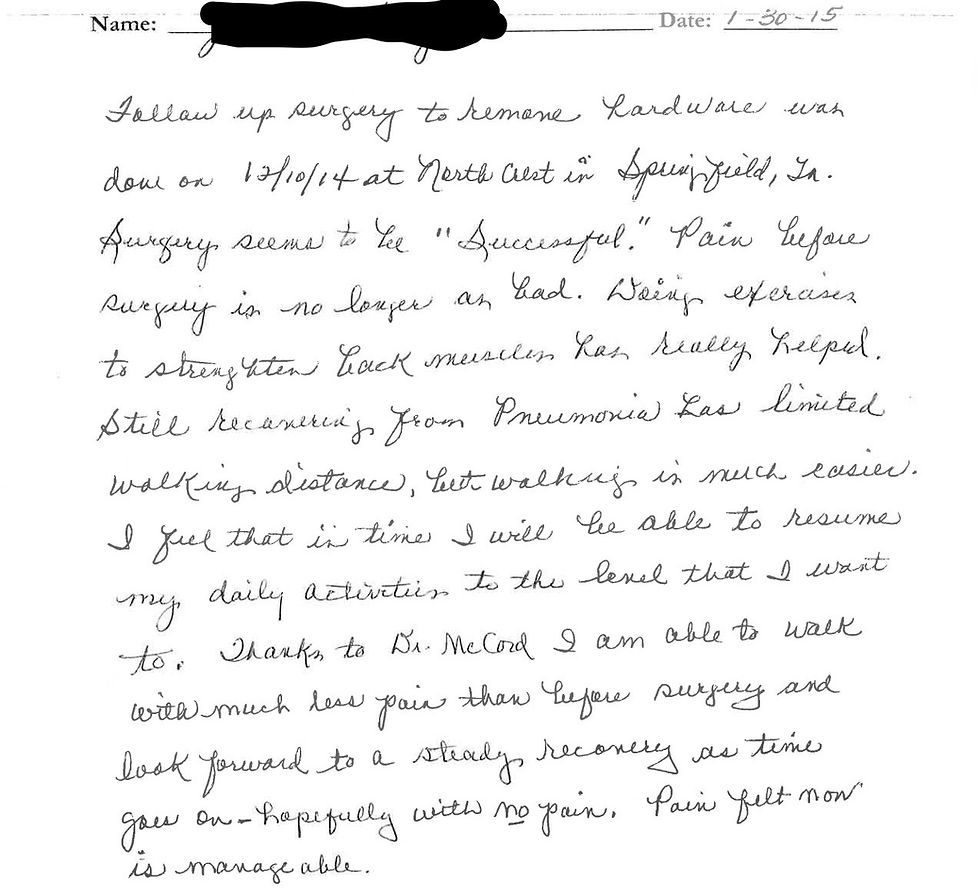 Name: Date: 1-30-15
Follow up surgery to remove hardware was
done on 12/10/14 at North Crest in Springfield, Tn.
Surgery seems to be "Successful." Pain before
surgery is no longer as bad. Doing exercises
to strenghten back muscles has really helped.
Still recovering from Pneumonia has limited
walking distance, but walking is much easier.
I feel that in time I will be able to resume
my daily activities to the level that I want
to. Thanks to Dr. McCord I am able to walk
with much less pain than before surgery and
look forward to a steady recovery as time
goes on - hopefully with no pain. Pain felt now
is manageable.